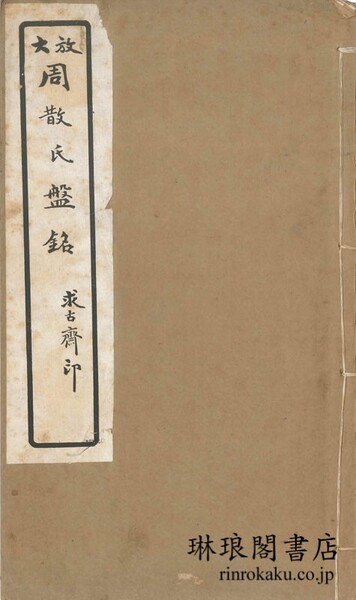 放大
周散氏盤銘
求古齊印
琳琅閣書店
rinrokaku.co.jp